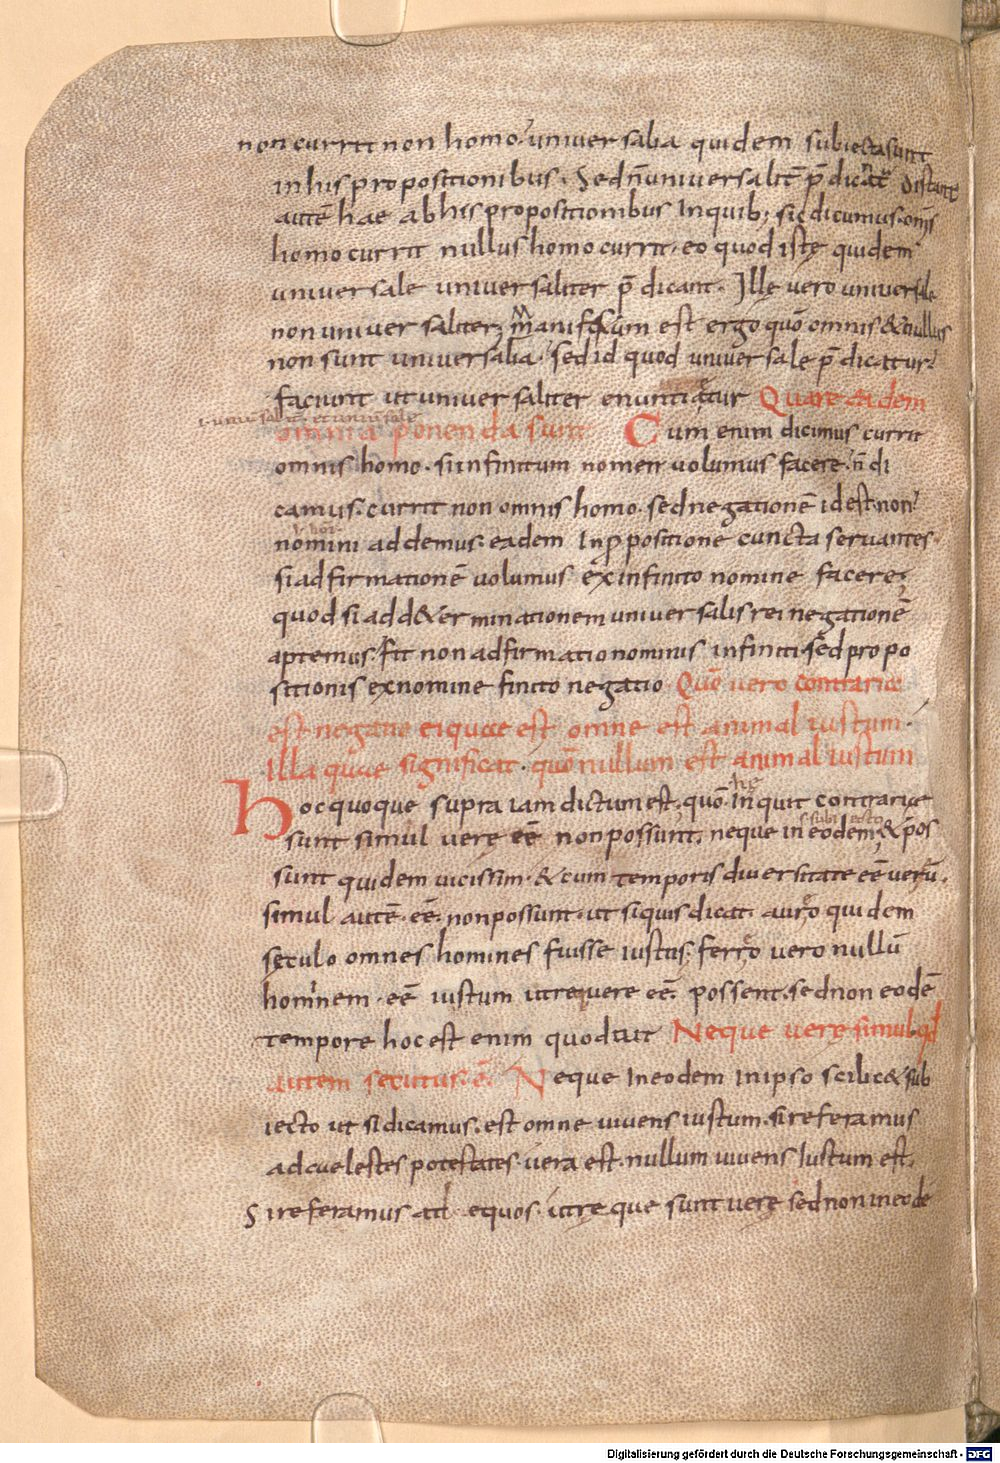 non currit non homo. universalia quidem subiecta sunt
in his propositionibus. Sed n̄ universalit̄ p̄dicant̄ distant
autē hae ab his propositionibus In quib; sic dicumus. om̄is
homo currit nullus homo currit. eo quod iste quidem
universale universaliter p̄dicant. Ille vero universale
non universaliter; Manifestum est ergo quō omnis & nullus
non sunt universalia. sed id quod universale p̄dicatur.
faciunt ut universaliter enuntiatur Quare eadem
omnia ponenda sunt Cum enim dicimus currit
omnis homo. si infinitum nomen volumus facere. n̄ di
camus. currit non omnis homo. sed negationē id est. non
nomini addemus. eadem In p̱positione cuncta servantes.
si adfirmationē volumus ex infinito nomine facere;
quod si ad d&erminationem universalis rei negationē
aptemus. fit non adfirmatio nominis infiniti. sed propo
sitionis ex nomine finito negatio. Quō vero contrariae
est negatio ei quae est omne est animal iustum.
Illa quae significat. quō nullum est animal iustum
Hoc quoque supra iam dictum est. quō Inquit contrariae
sunt simul vere eē non possunt. neque in eodem; & p̄os
sunt quidem vicissim. & cum temporis diversitate eē verū.
simul autē. eē. non possunt. ut si quis dicat. auro quidem
seculo omnes homines fuisse iustus; ferro vero nullū
hominem. eē iustum utreque vere eē. possent. sed non eodē
tempore hoc est enim quod ait Neque vere simul. qd
autem secutus. ē. Neque In eodem In ipso scilic& sub
iecto ut si dicamus. est omne vivens iustum. si referamus
ad caelestes potestates. vera est. nullum vivens Iustum est.
Si referamus ad equos. utreque sunt vere sed non in eodē
Digitalisierung gefördert durch die Deutsche Forschungsgemeinschaft - DFG